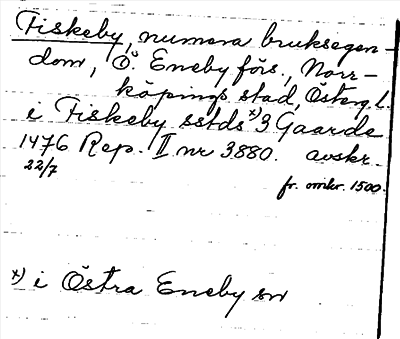 Fiskeby, numera bruksegen-
dom, Ö. Eneby förs., Norr-
köpings stad, Österg. l.
i Fiskeby sstds x) 3 Gaarde
1476 Rep. II nr 3880. avskr.
22/7 fr. omkr. 1500.
x) i Östra Eneby sn